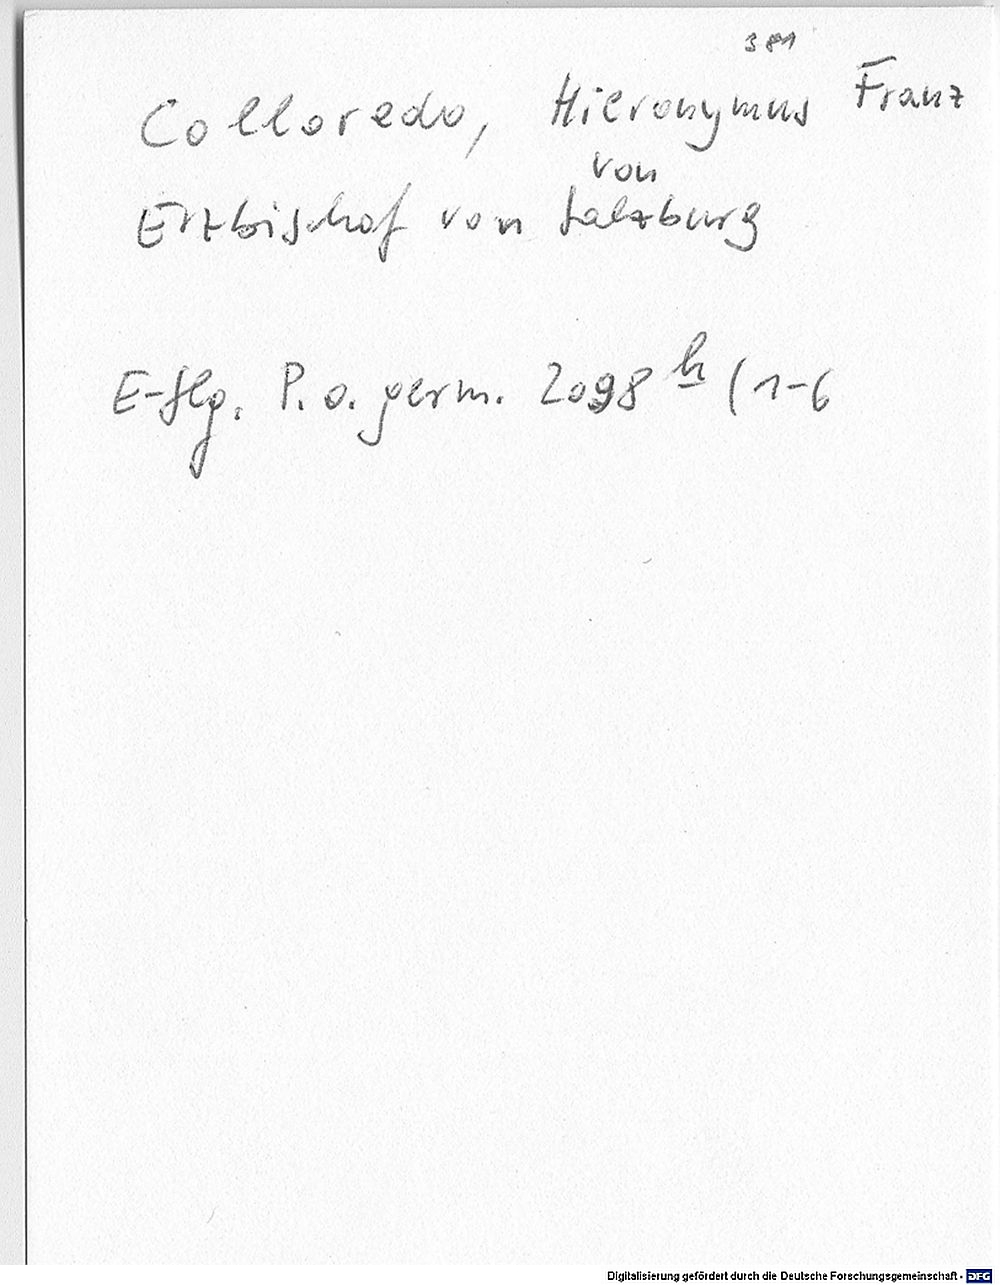 381
Colloredo, Hieronymus Franz
von
Erzbischof von Salzburg
E-Slg. P.o. germ. 2098 h (1-6
Digitalisierung gefördert durch die Deutsche Forschungsgemeinschaft - DFG